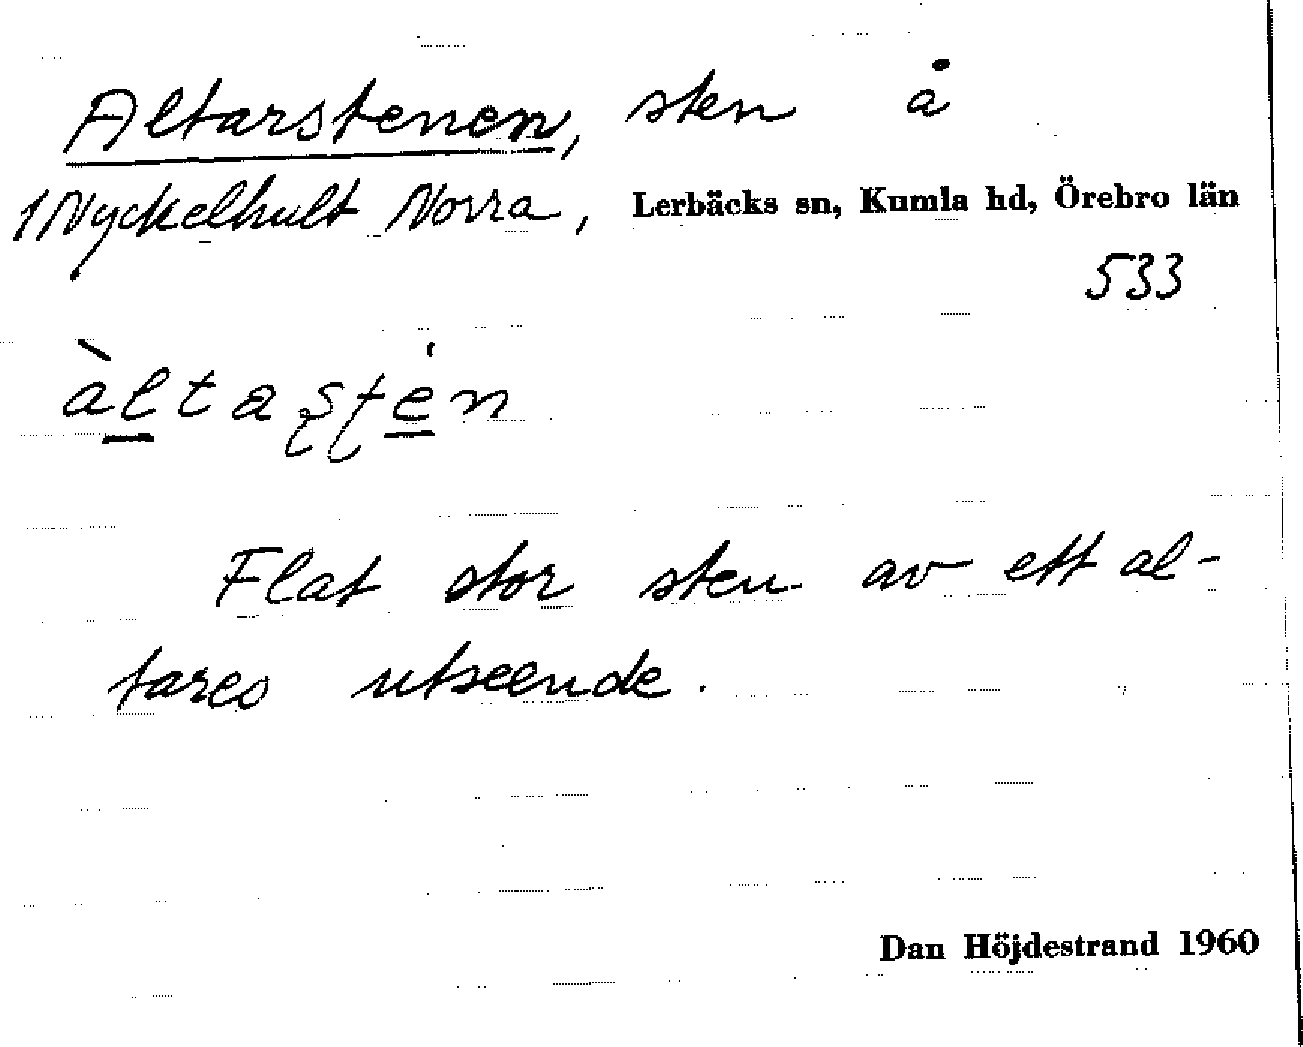 Altarstenen, sten å
1 Nyckelhult Norra, Lerbäcks sn, Kumla hd, Örebro län
533
àltaʂʈén
Flat stor sten av ett al-
tares utseende.
Dan Höjdestrand 1960